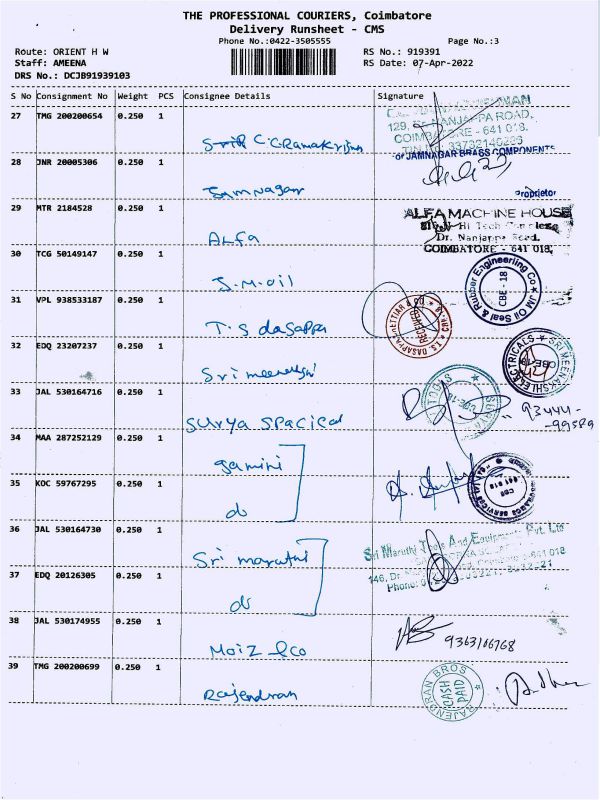 THE PROFESSIONAL COURIERS, Coimbatore
Delivery Runsheet - CMS
Phone No.:0422-3505555 Page No.:3
Route: ORIENT H W RS No.: 919391
Staff: AMEENA RS Date: 07-Apr-2022
DRS No.: DCJB91939103
S No Consignment No Weight PCS Consignee Details Signature
27 TMG 200200654 0.250 1
129, Dr. NANJAPPA ROAD,
COIMBATORE - 641 018.
28 JNR 20005306 0.250 1
For JAMNAGAR BRASS COMPONENTS
Jamnagar
Proprietor
29 MTR 2184528 0.250 1
ALFA MACHINE HOUSE
Alfa
Dr. Nanjappa Road,
COIMBATORE - 641 018.
30 TCG 50149147 0.250 1
J.M.oil
JM Oil Seal & Rubber Engineering Co
CBE - 18
31 VPL 938533187 0.250 1
T.S dasappa
RECEIVED
32 EDQ 23207237 0.250 1
33 JAL 530164716 0.250 1
TOOLS
SURYA
surya spacical
93444-
-99589
34 MAA 287252129 0.250 1
gamini
35 KOC 59767295 0.250 1
do
36 JAL 530164730 0.250 1
Sri Maruthi Tools And Equipments Pvt. Ltd
Sri maruthi
37 EDQ 20126305 0.250 1
do
38 JAL 530174955 0.250 1
Moiz &co
9363166768
39 TMG 200200699 0.250 1
Rajendran
RAJENDRAN BROS
CASH
PAID